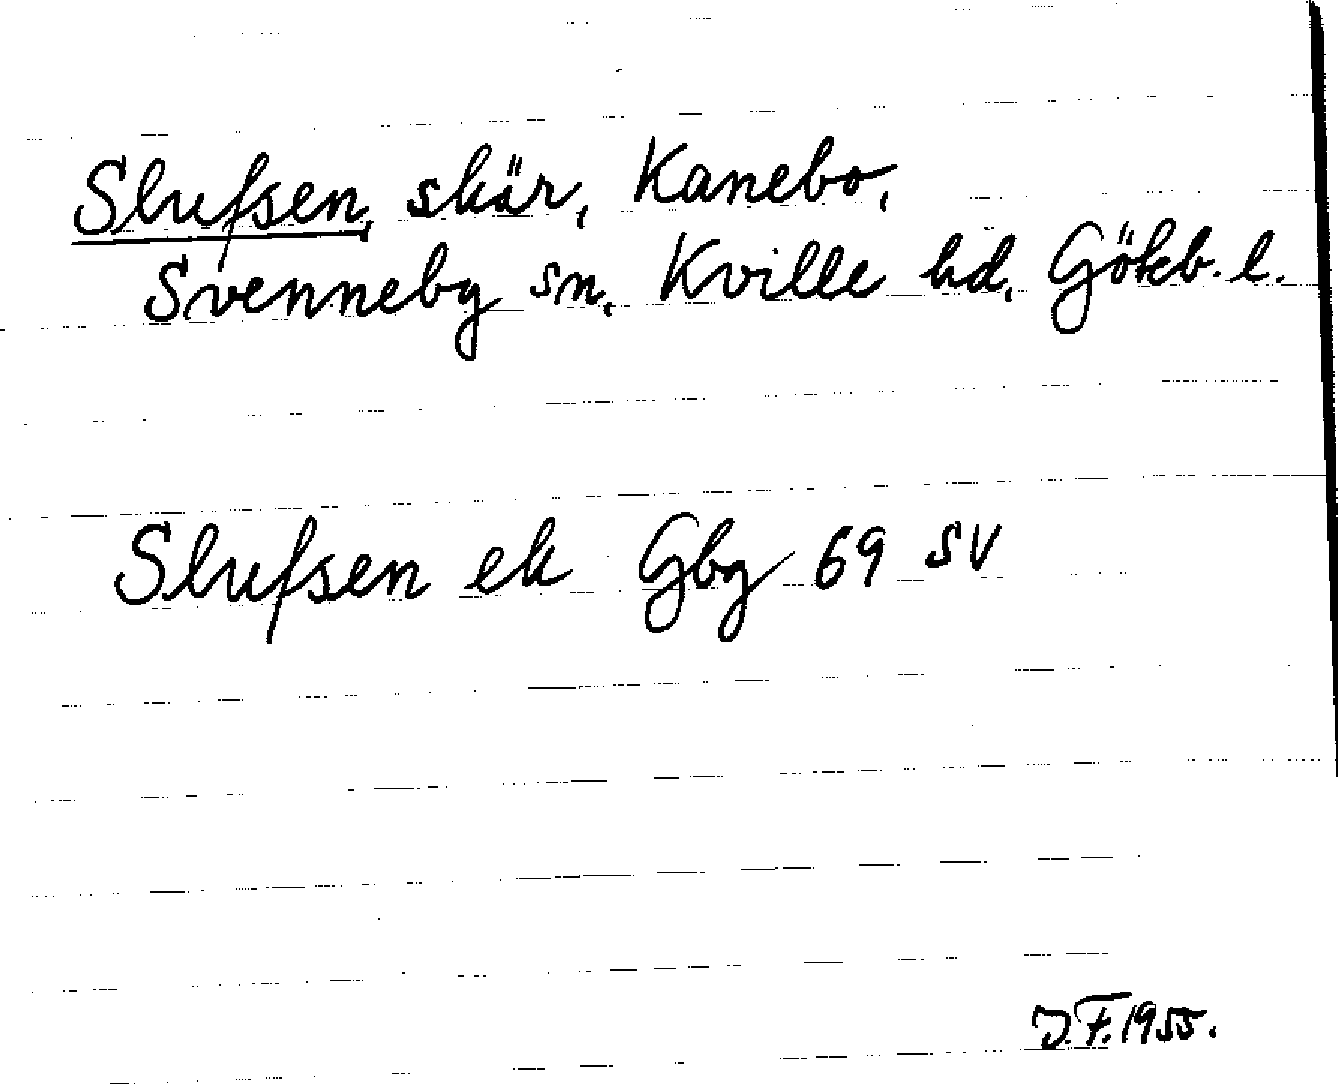 Slufsen, skär, Kanebo,
Svenneby sn, Kville hd, Gökb. l.
Slufsen ek Gbg 69 SV
J.F. 1955.